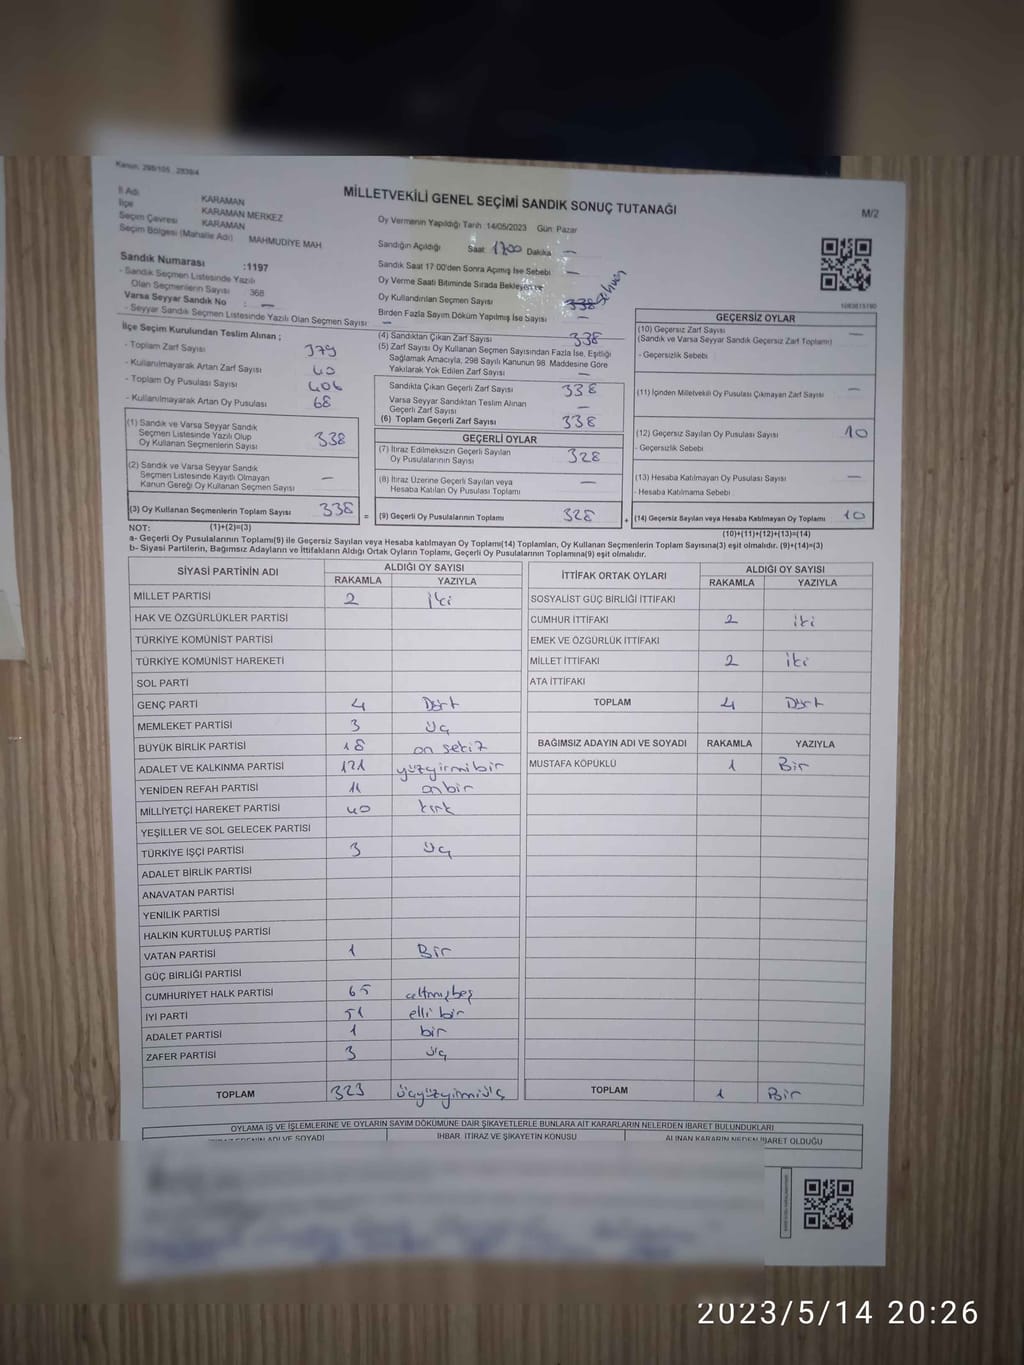 Kanun, 298/105 , 2839/4
MİLLETVEKİLİ GENEL SEÇİMİ SANDIK SONUÇ TUTANAĞI
M/2
İl Adı KARAMAN
İlçe KARAMAN MERKEZ
Seçim Çevresi KARAMAN
Seçim Bölgesi (Mahalle Adı) MAHMUDİYE MAH
Sandık Numarası :1197
- Sandık Seçmen Listesinde Yazılı
Olan Seçmenlerin Sayısı : 368
Varsa Seyyar Sandık No : —
- Seyyar Sandık Seçmen Listesinde Yazılı Olan Seçmen Sayısı —
İlçe Seçim Kurulundan Teslim Alınan ;
- Toplam Zarf Sayısı 379
- Kullanılmayarak Artan Zarf Sayısı
- Toplam Oy Pusulası Sayısı 406
- Kullanılmayarak Artan Oy Pusulası 68
(1) Sandık ve Varsa Seyyar Sandık
Seçmen Listesinde Yazılı Olup
Oy Kullanan Seçmenlerin Sayısı 338
(2) Sandık ve Varsa Seyyar Sandık
Seçmen Listesinde Kayıtlı Olmayan
Kanun Gereği Oy Kullanan Seçmen Sayısı —
(3) Oy Kullanan Seçmenlerin Toplam Sayısı 338 =
(1)+(2)=(3)
Oy Vermenin Yapıldığı Tarih 14/05/2023 Gün Pazar
Sandığın Açıldığı Saat 1700 Dakika —
Sandık Saat 17 00'den Sonra Açımış İse Sebebi —
Oy Verme Saati Bitiminde Sırada Bekleyen ve
Oy Kullandırılan Seçmen Sayısı 338
Birden Fazla Sayım Döküm Yapılmış İse Sayısı —
(4) Sandıktan Çıkan Zarf Sayısı 338
(5) Zarf Sayısı Oy Kullanan Seçmen Sayısından Fazla İse, Eşitliği
Sağlamak Amacıyla, 298 Sayılı Kanunun 98. Maddesine Göre
Yakılarak Yok Edilen Zarf Sayısı —
Sandıkta Çıkan Geçerli Zarf Sayısı 338
Varsa Seyyar Sandıktan Teslim Alınan
Geçerli Zarf Sayısı —
(6) Toplam Geçerli Zarf Sayısı 338
GEÇERLİ OYLAR
(7) İtiraz Edilmeksizin Geçerli Sayılan
Oy Pusulalarının Sayısı 328
(8) İtiraz Üzerine Geçerli Sayılan veya
Hesaba Katılan Oy Pusulası Toplamı —
(9) Geçerli Oy Pusulalarının Toplamı 328 +
GEÇERSİZ OYLAR
(10) Geçersiz Zarf Sayısı —
(Sandık ve Varsa Seyyar Sandık Geçersiz Zarf Toplamı)
- Geçersizlik Sebebi
(11) İçinden Milletvekili Oy Pusulası Çıkmayan Zarf Sayısı —
(12) Geçersiz Sayılan Oy Pusulası Sayısı 10
- Geçersizlik Sebebi
(13) Hesaba Katılmayan Oy Pusulası Sayısı —
- Hesaba Katılmama Sebebi
(14) Geçersiz Sayılan veya Hesaba Katılmayan Oy Toplamı 10
(10)+(11)+(12)+(13)=(14)
NOT:
a- Geçerli Oy Pusulalarının Toplamı(9) ile Geçersiz Sayılan veya Hesaba katılmayan Oy Toplamı(14) Toplamları, Oy Kullanan Seçmenlerin Toplam Sayısına(3) eşit olmalıdır. (9)+(14)=(3)
b- Siyasi Partilerin, Bağımsız Adayların ve İttifakların Aldığı Ortak Oyların Toplamı, Geçerli Oy Pusulalarının Toplamına(9) eşit olmalıdır.
SİYASİ PARTİNİN ADI ALDIĞI OY SAYISI
RAKAMLA YAZIYLA
MİLLET PARTİSİ 2 iki
HAK VE ÖZGÜRLÜKLER PARTİSİ
TÜRKİYE KOMÜNİST PARTİSİ
TÜRKİYE KOMÜNİST HAREKETİ
SOL PARTİ
GENÇ PARTİ 4 Dört
MEMLEKET PARTİSİ 3 üç
BÜYÜK BİRLİK PARTİSİ 18 on sekiz
ADALET VE KALKINMA PARTİSİ 121 yüzyirmibir
YENİDEN REFAH PARTİSİ 11 onbir
MİLLİYETÇİ HAREKET PARTİSİ 40 kırk
YEŞİLLER VE SOL GELECEK PARTİSİ
TÜRKİYE İŞÇİ PARTİSİ 3 üç
ADALET BİRLİK PARTİSİ
ANAVATAN PARTİSİ
YENİLİK PARTİSİ
HALKIN KURTULUŞ PARTİSİ
VATAN PARTİSİ 1 Bir
GÜÇ BİRLİĞİ PARTİSİ
CUMHURİYET HALK PARTİSİ 65 altmışbeş
İYİ PARTİ 51 elli bir
ADALET PARTİSİ 1 bir
ZAFER PARTİSİ 3 üç
TOPLAM 323 üçyüzyirmiüç
İTTİFAK ORTAK OYLARI ALDIĞI OY SAYISI
RAKAMLA YAZIYLA
SOSYALİST GÜÇ BİRLİĞİ İTTİFAKI
CUMHUR İTTİFAKI 2 iki
EMEK VE ÖZGÜRLÜK İTTİFAKI
MİLLET İTTİFAKI 2 iki
ATA İTTİFAKI
TOPLAM 4 Dört
BAĞIMSIZ ADAYIN ADI VE SOYADI RAKAMLA YAZIYLA
MUSTAFA KÖPÜKLÜ 1 Bir
TOPLAM 1 Bir
OYLAMA İŞ VE İŞLEMLERİNE VE OYLARIN SAYIM DÖKÜMÜNE DAİR ŞİKAYETLERLE BUNLARA AİT KARARLARIN NELERDEN İBARET BULUNDUKLARI
ADI VE SOYADI İHBAR İTİRAZ VE ŞİKAYETİN KONUSU ALINAN KARARIN NEDEN İBARET OLDUĞU
2023/5/14 20:26